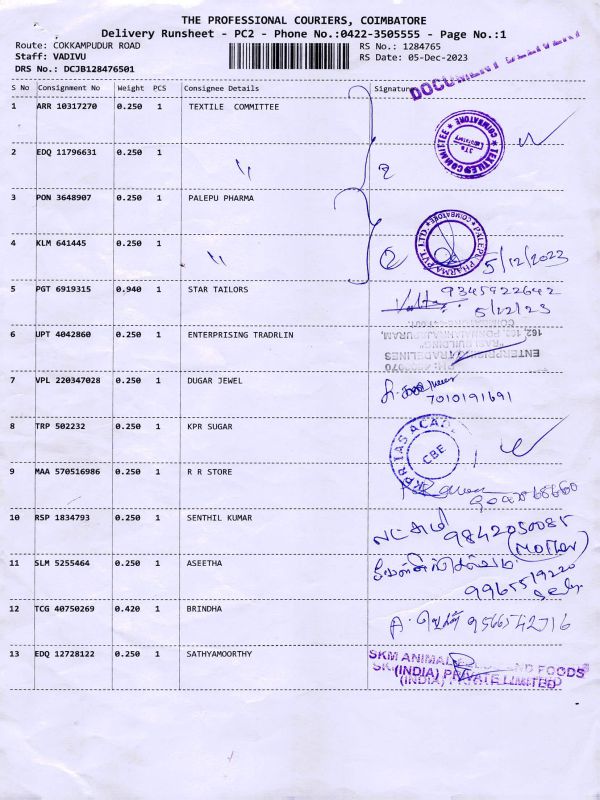 THE PROFESSIONAL COURIERS, COIMBATORE
Delivery Runsheet - PC2 - Phone No.:0422-3505555 - Page No.:1
Route: COKKAMPUDUR ROAD
RS No.: 1284765
Staff: VADIVU
RS Date: 05-Dec-2023
DRS No.: DCJB128476501
DOCUMENT DELIVERY
S No Consignment No Weight PCS Consignee Details Signature
1 ARR 10317270 0.250 1 TEXTILE COMMITTEE
TEXTILES COMMITTEE * COIMBATORE *
Laboratory
2 EDQ 11796631 0.250 1 " 2
3 PON 3648907 0.250 1 PALEPU PHARMA
PALEPU PHARMA PVT. LTD. * COIMBATORE *
4 KLM 641445 0.250 1 " 2 5/12/2023
5 PGT 6919315 0.940 1 STAR TAILORS
9345922642
5/12/23
6 UPT 4042860 0.250 1 ENTERPRISING TRADRLIN
162, 163, PONNAIAHRAJAPURAM,
"RASI BUILDING"
ENTERPRISING TRADELINES
7 VPL 220347028 0.250 1 DUGAR JEWEL
7010191691
8 TRP 502232 0.250 1 KPR SUGAR
KPR IAS ACADEMY
CBE
9 MAA 570516986 0.250 1 R R STORE
10 RSP 1834793 0.250 1 SENTHIL KUMAR
9842050085
(Mother)
11 SLM 5255464 0.250 1 ASEETHA
9965519220
12 TCG 40750269 0.420 1 BRINDHA
9566542716
13 EDQ 12728122 0.250 1 SATHYAMOORTHY
SKM ANIMAL FEEDS AND FOODS
(INDIA) PRIVATE LIMITED
(INDIA) PRIVATE LIMITED